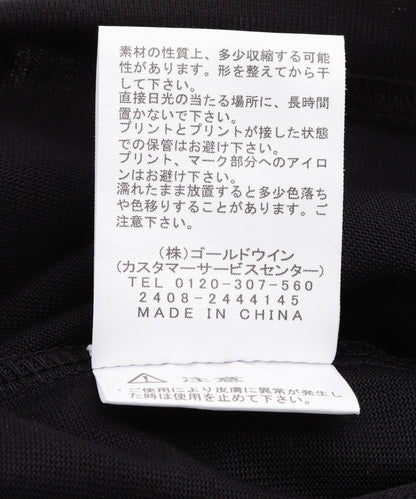 素材の性質上、多少収縮する可能
性があります。形を整えてから干
して下さい。
直接日光の当たる場所に、長時間
置かないで下さい。
プリントとプリントが接した状態
での保管はお避け下さい。
プリント、マーク部分へのアイロ
ンはお避け下さい。
濡れたまま放置すると多少色落ち
や色移りすることがあります。ご
注意下さい。
(株)ゴールドウイン
(カスタマーサービスセンター)
TEL 0120-307-560
2408-2444145
MADE IN CHINA
注意
・ご使用により皮膚に異常が発生し
た時は使用を止めて下さい。